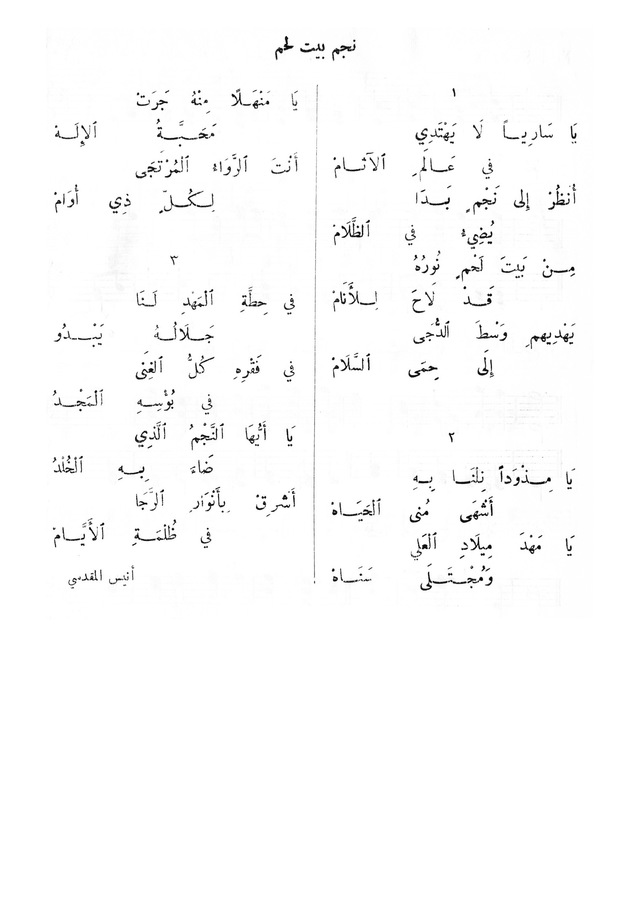 نجم بيت لحم
١
يَا سَارِيـاً لَا يَهْتَدِي
في عَـالَمِ ٱلآثـامْ
أُنظُرْ إِلى نَجْمٍ بَـدَا
يُضِيءُ في ٱلظَّلَامْ
مِـنْ بَيْتَ لَحْمٍ نُورُهُ
قَـدْ لَاحَ لِـلأَنَامْ
يَهْدِيهِمِ وَسْطَ ٱلدُّجَى
إِلَى حِمَى ٱلسَّلَامْ
٢
يَا مِـذْوَداً نِلْنَـا بِـهِ
أَشْهَى مُنى ٱلْحَيَـاهْ
يَا مَهْدَ مِيلَادِ ٱلْعَلِي
وَمُجْـتَـلَى سَنَـاهْ
يَا مَنْهَـلًا مِنْهُ جَرَتْ
مَحَبَّـةُ ٱلإِلَـهْ
أَنْتَ ٱلرَّوَاءُ ٱلْمُرْتَجَى
لِـكُـلِّ ذِي أُوَامْ
٣
في حِطَّةِ ٱلْمَهْدِ لَـنَا
جَـلَالُـهُ يَبْـدُو
في فَقْرِهِ كُلُّ ٱلْغِنَى
في بُؤْسِـهِ ٱلْمَجْـدُ
يَا أَيُّهَا ٱلنَّجْمُ ٱلَّذِي
ضَاءَ بِـهِ ٱلْخُلْدُ
أَشْرِقْ بِأَنْوَارِ ٱلرَّجَا
في ظُلْمَـةِ ٱلأَيَّـامْ
أنيس المقدسي